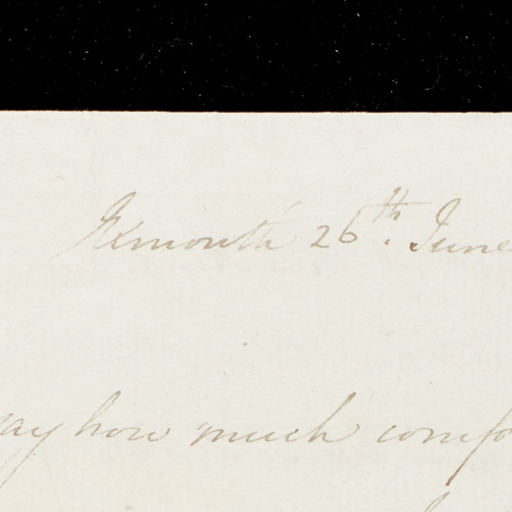 Exmouth 26th. June
say how much comfo